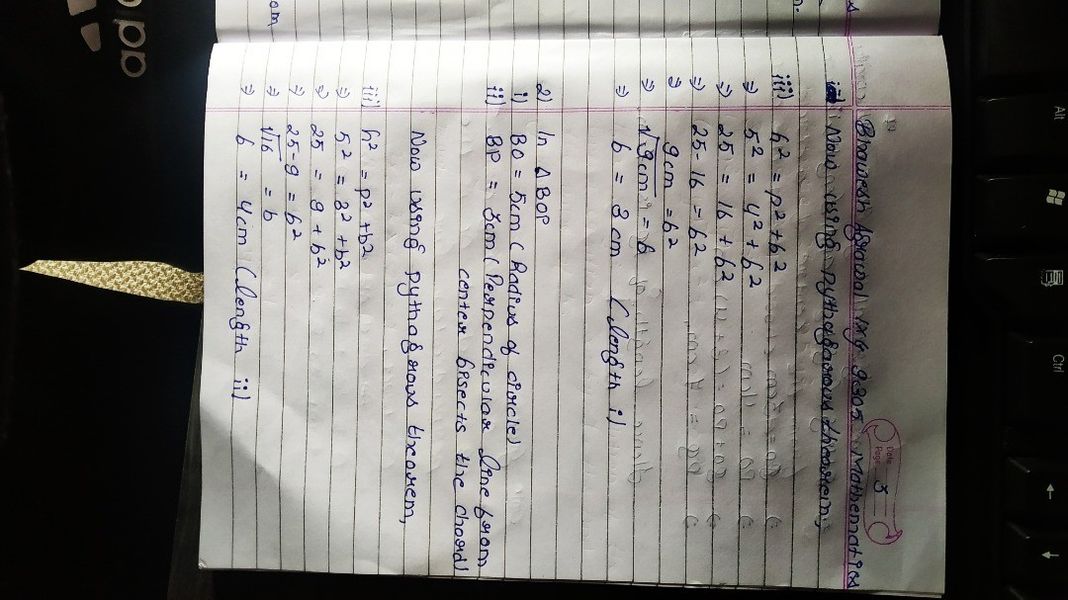 Date
Page 3
Bhawesh Agrawal 9305 Mathematics
Now using pythagorous theorem,
iii) h² = p² + b²
⇒ 5² = 4² + b²
⇒ 25 = 16 + b²
⇒ 25 - 16 = b²
⇒ 9cm = b²
⇒ √9cm = b
⇒ b = 3 cm (length i)
2) In △ BOP
i) BO = 5cm (Radius of circle)
ii) BP = 3cm (Perpendicular line from
center bisects the chord)
Now using pythagorous theorem,
iii) h² = p² + b²
⇒ 5² = 3² + b²
⇒ 25 = 9 + b²
⇒ 25 - 9 = b²
⇒ √16 = b
⇒ b = 4cm (length ii)
om
n.
s
ad
Alt
Ctrl